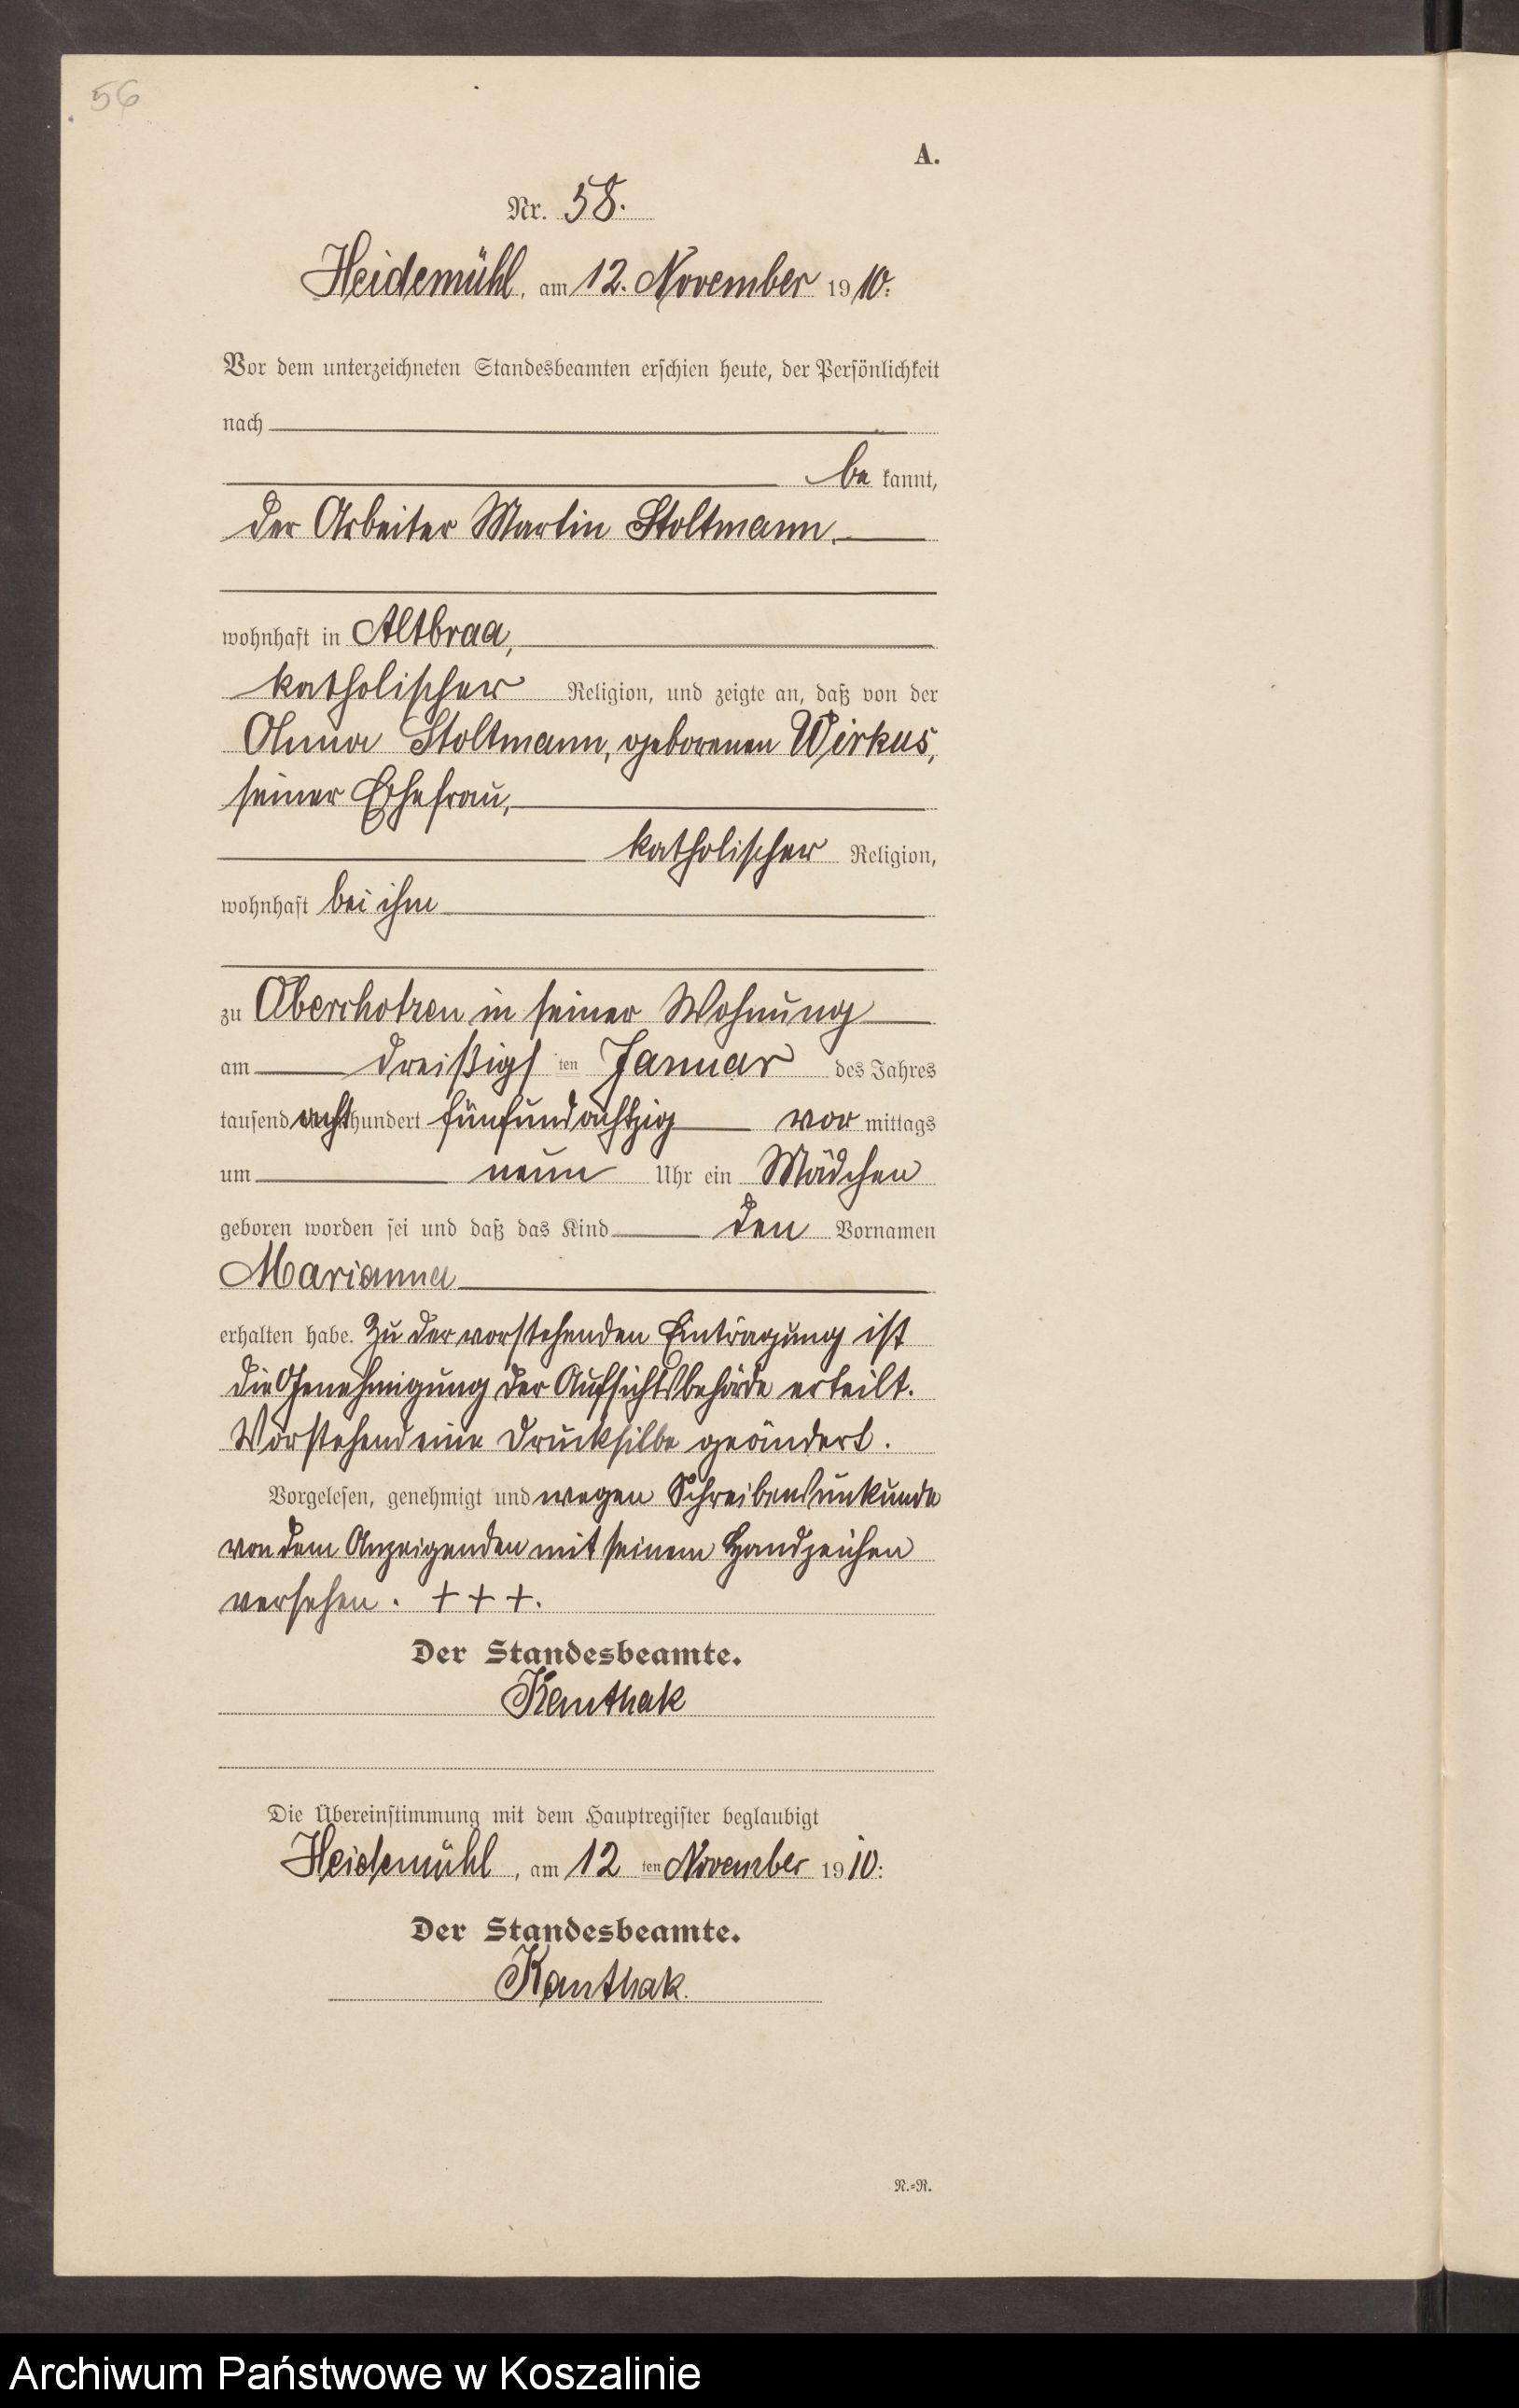 56
A.
Nr. 58.
Heidemühl, am 12. November 1910.
Vor dem unterzeichneten Standesbeamten erschien heute, der Persönlichkeit
nach
be kannt,
der Arbeiter Martin Stoltmann.
wohnhaft in Altbraa,
katholischer Religion, und zeigte an, daß von der
Anna Stoltmann, geborenen Wirkus,
seiner Ehefrau,
katholischer Religion,
wohnhaft bei ihm
zu Oberchotzen in seiner Wohnung
am dreißigs ten Januar des Jahres
tausend achthundert fünfundachtzig vor mittags
um neun Uhr ein Mädchen
geboren worden sei und daß das Kind den Vornamen
Marianna
erhalten habe. Zu der vorstehenden Eintragung ist
die Genehmigung der Aufsichtsbehörde erteilt.
Vorstehend eine Drucksilbe geändert.
Vorgelesen, genehmigt und wegen Schreibensunkunde
von dem Anzeigenden mit seinem Handzeichen
versehen. + + +.
Der Standesbeamte.
Kanthak
Die Übereinstimmung mit dem Hauptregister beglaubigt
Heidemühl, am 12 ten November 1910.
Der Standesbeamte.
Kanthak.
N.=R.
Archiwum Państwowe w Koszalinie